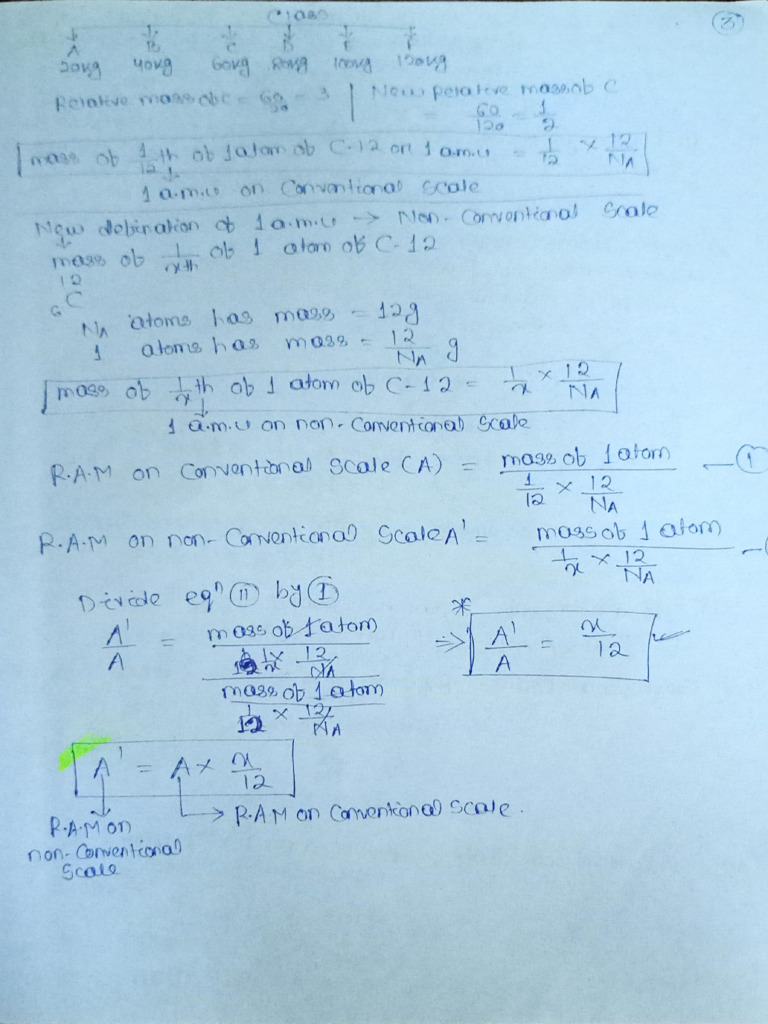 3
Class
A B C D E F
20kg 40kg 60kg 80kg 100kg 120kg
Relative mass of C = 60/20 = 3 | New Relative mass of C
= 60/120 = 1/2
mass of 1/12 th of 1 atom of C-12 or 1 a.m.u = 1/12 × 12/NA
1 a.m.u on Conventional Scale
New defination of 1 a.m.u → Non-Conventional Scale
mass of 1/xth of 1 atom of C-12
12
6 C
NA atoms has mass = 12g
1 atoms has mass = 12/NA g
mass of 1/x th of 1 atom of C-12 = 1/x × 12/NA
1 a.m.u on non-Conventional Scale
R.A.M on Conventional Scale (A) = mass of 1 atom / 1/12 × 12/NA — I
R.A.M on non-Conventional Scale A' = mass of 1 atom / 1/x × 12/NA —
Divide eqn II by I
A'/A = mass of 1 atom / 1/x × 12/NA
mass of 1 atom / 1/12 × 12/NA
* ⇒ A'/A = x/12
A' = A × x/12
→ R.A.M on Conventional Scale.
R.A.M on
non-Conventional
Scale